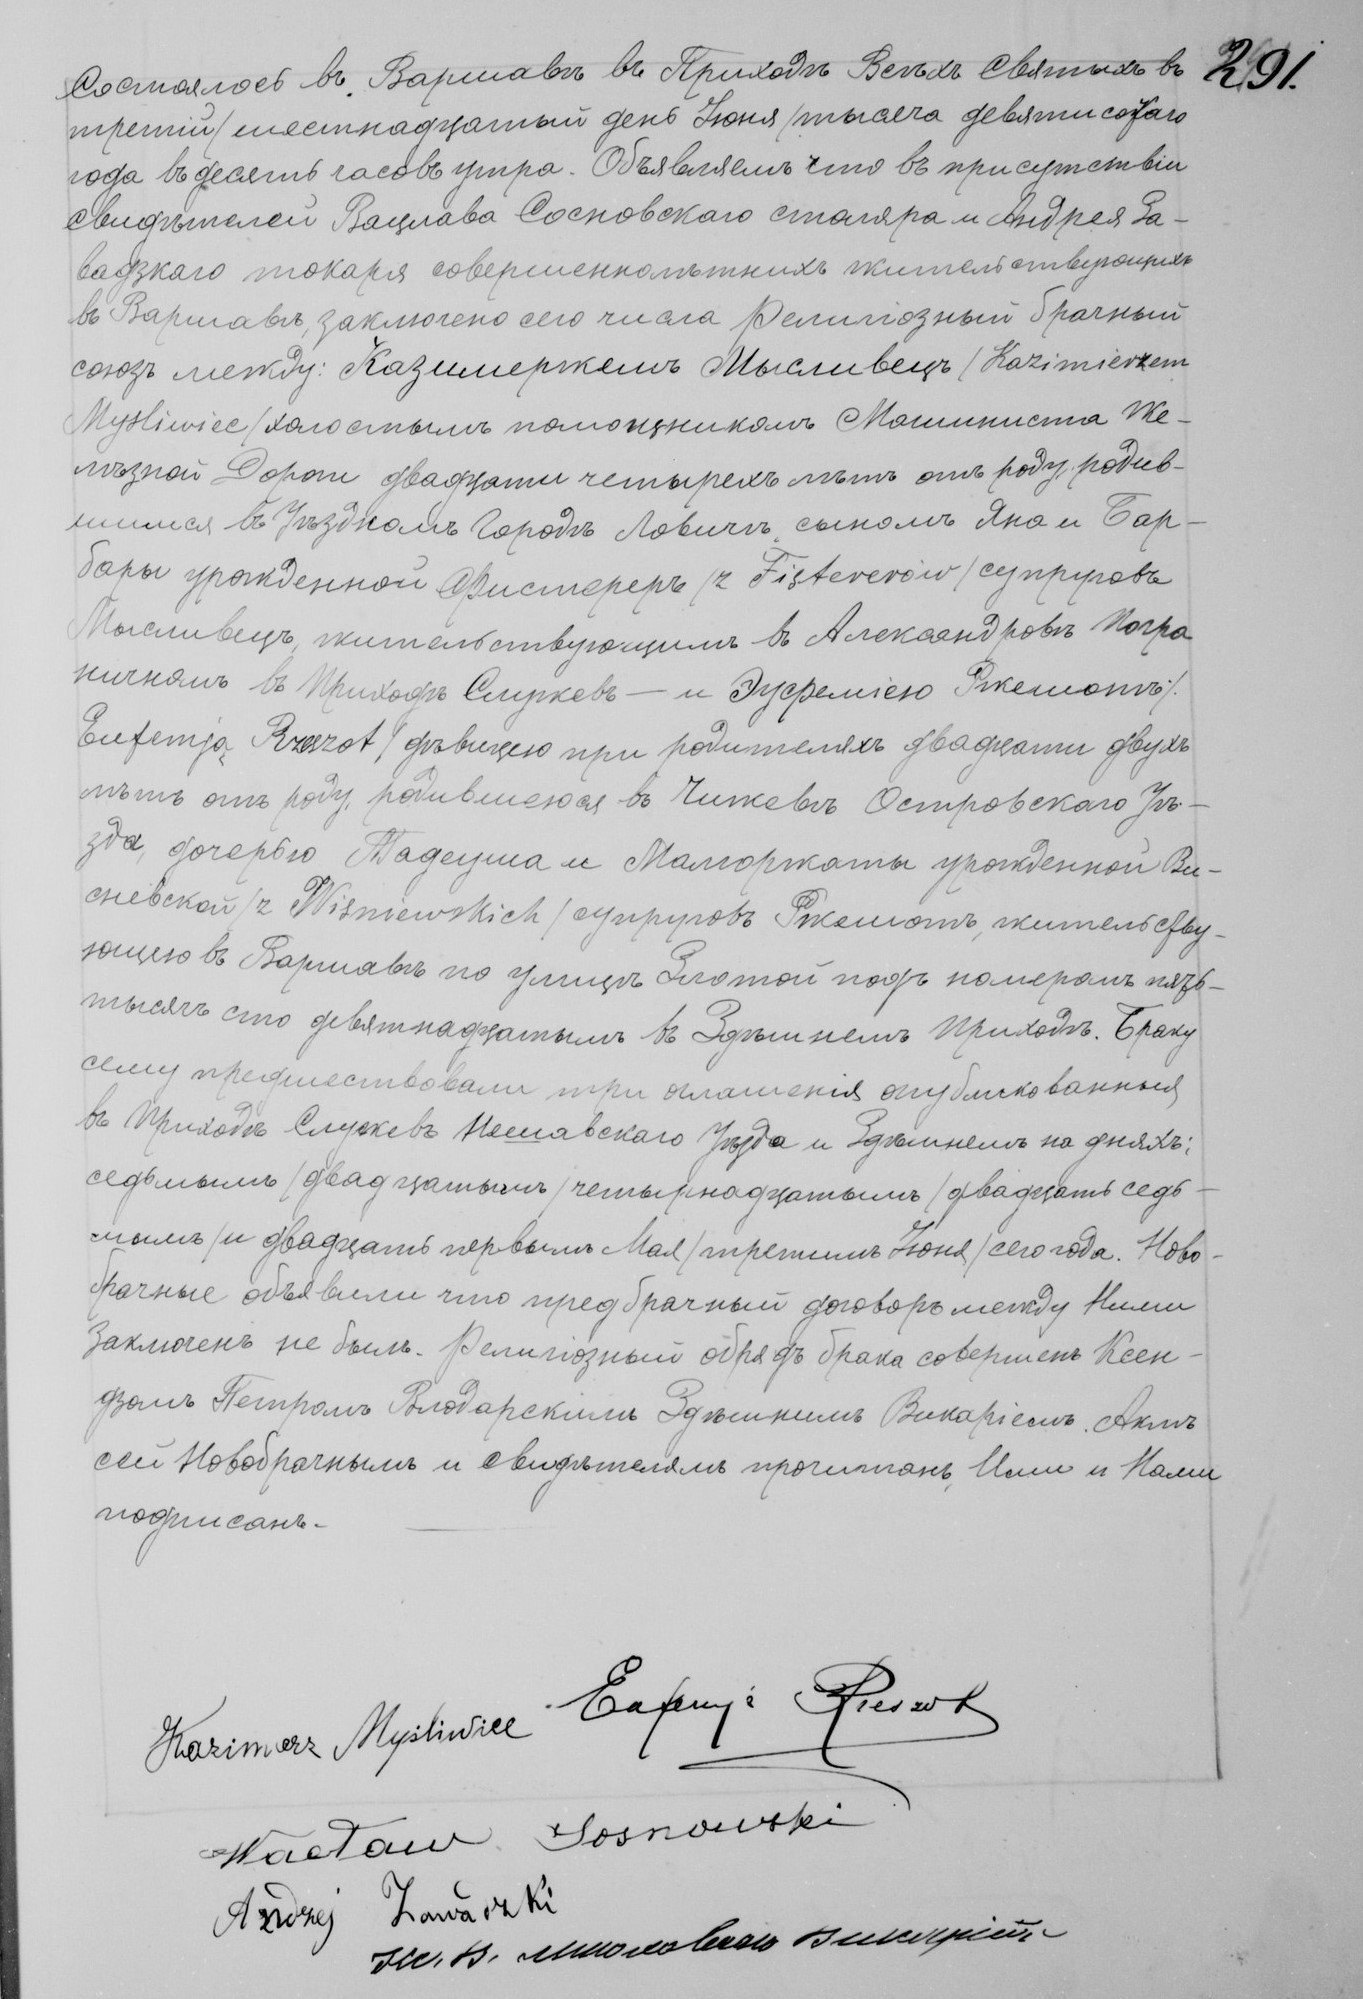 291.
Состоялось въ Варшавѣ въ Приходѣ Всѣхъ Святыхъ въ
третій/шестнадцатый день Іюня/тысяча девятисотаго
года въ десять часовъ утра. Объявляемъ что въ присутствіи
свидѣтелей Вацлава Сосновскаго столяра и Андрея За-
вадзкаго токаря совершеннолѣтнихъ жительствующихъ
въ Варшавѣ, заключено сего числа Религіозный брачный
союзъ между: Казимержемъ Мысливецъ /Kazimierzem
Myśliwiec/ холостымъ помощникомъ Машиниста Же-
лѣзной Дороги двадцати четырехъ лѣтъ отъ роду, родив-
шимся въ Уѣздномъ Городѣ Ловичѣ, сыномъ Яна и Бар-
бары урожденной Фистереръ /z Fistererów/ супруговъ
Мысливецъ, жительствующимъ въ Александровѣ Погра
ничномъ въ Приходѣ Служевъ — и Эуфеміею Ржешотъ/.
Eufemją Rzeszot/ дѣвицею при родителяхъ двадцати двухъ
лѣтъ отъ роду, родившеюся въ Чижевѣ Островскаго Уѣ-
зда, дочерью Тадеуша и Малгоржаты урожденной Ви-
сневской /z Wiśniewskich/ супруговъ Ржешотъ, жительству-
ющею въ Варшавѣ по улицѣ Златой подъ номеромъ пять-
тысячъ сто девятнадцатымъ въ Здѣшнемъ Приходѣ. Браку
сему предшествовали три оглашенія опубликованныя
въ Приходѣ Служевъ Нешавскаго Уѣзда и Здѣшнемъ на дняхъ:
седьмымъ/двадцатымъ/четырнадцатымъ/двадцать седь-
мымъ/и двадцать первымъ Мая/третьимъ Іюня/сего года. Ново-
брачные объявили что предбрачный договоръ между Ними
Заключенъ не былъ. Религіозный обрядъ брака совершенъ Ксен-
дзомъ Петромъ Влодарскимъ Здѣшнимъ Викаріемъ. Актъ
сей Новобрачнымъ и свидѣтелямъ прочитанъ, Ими и Нами
подписанъ.-
Kazimierz Myśliwiec Eufemja Rzeszot
Wacław Sosnowski
Andrzej Zawadzki